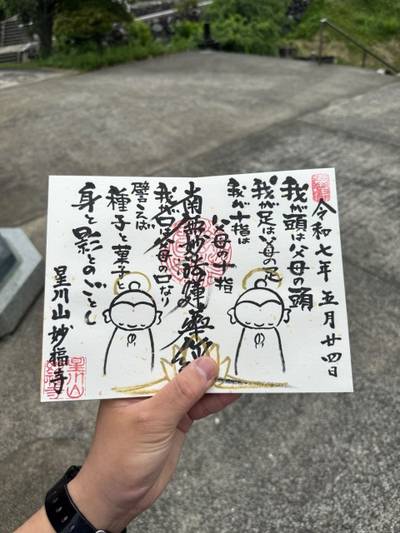 令和七年五月廿四日
我が頭は父母の頭
我が足は父母の足
我が十指は
父母の十指
南無妙法蓮華経
我が口は父母の口なり
譬えば
種子と菓子と
身と影とのごとし
星川山妙福寺